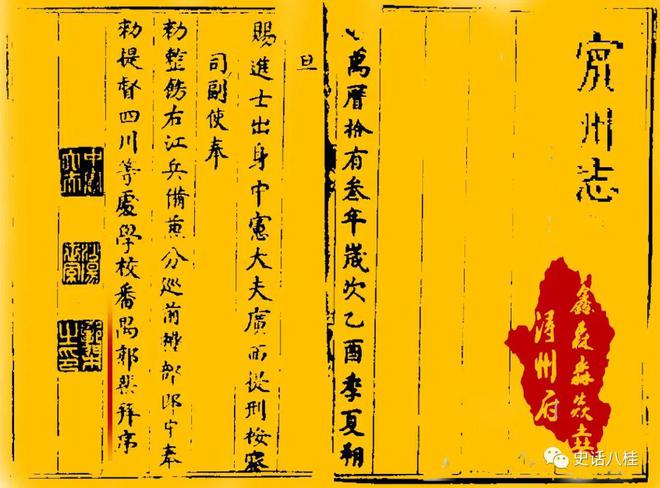 賔州志
鑫森淼焱垚
浔州府
萬曆拾有叁年歲次乙酉季夏朔
旦
賜進士出身中憲大夫廣西提刑按察
司副使奉
勑整飭右江兵備兼分巡前禮部郎中奉
勑提督四川等處學校番禺郭棐拜序
史话八桂